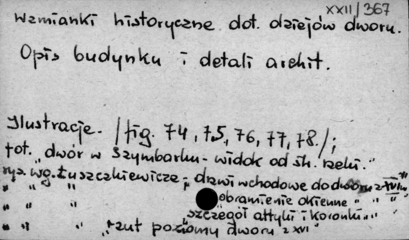 XXII/367
Wzmianki historyczne dot. dziejów dworu.
Opis budynku i detali archit.
Ilustracje. /fig. 74, 75, 76, 77, 78./;
fot. "dwór w Szymbarku - widok od str. rzeki."
rys. wg. Łuszczkiewicza - drzwi wchodowe do dworu z XVI w."
" " " "obramienie okienne" " "
" " " "szczegół attyki i koronki" " "
" " "rzut poziomy dworu z XVI"